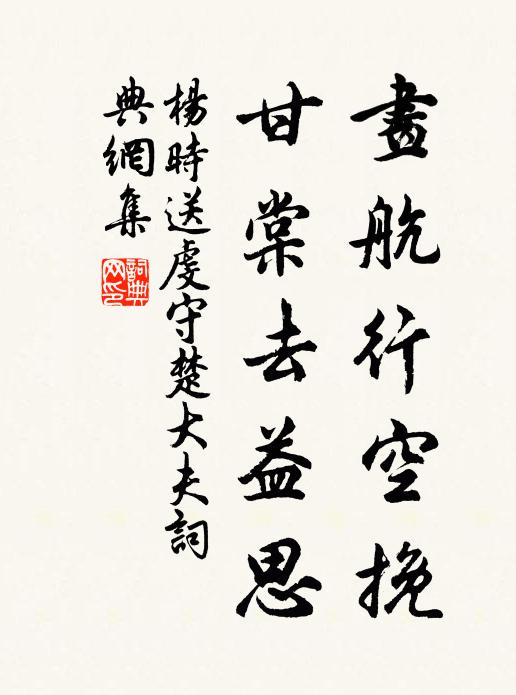 畫航行空挽
甘棠去益思
楊時送虔守楚大夫詞
典網集
詞典
网印